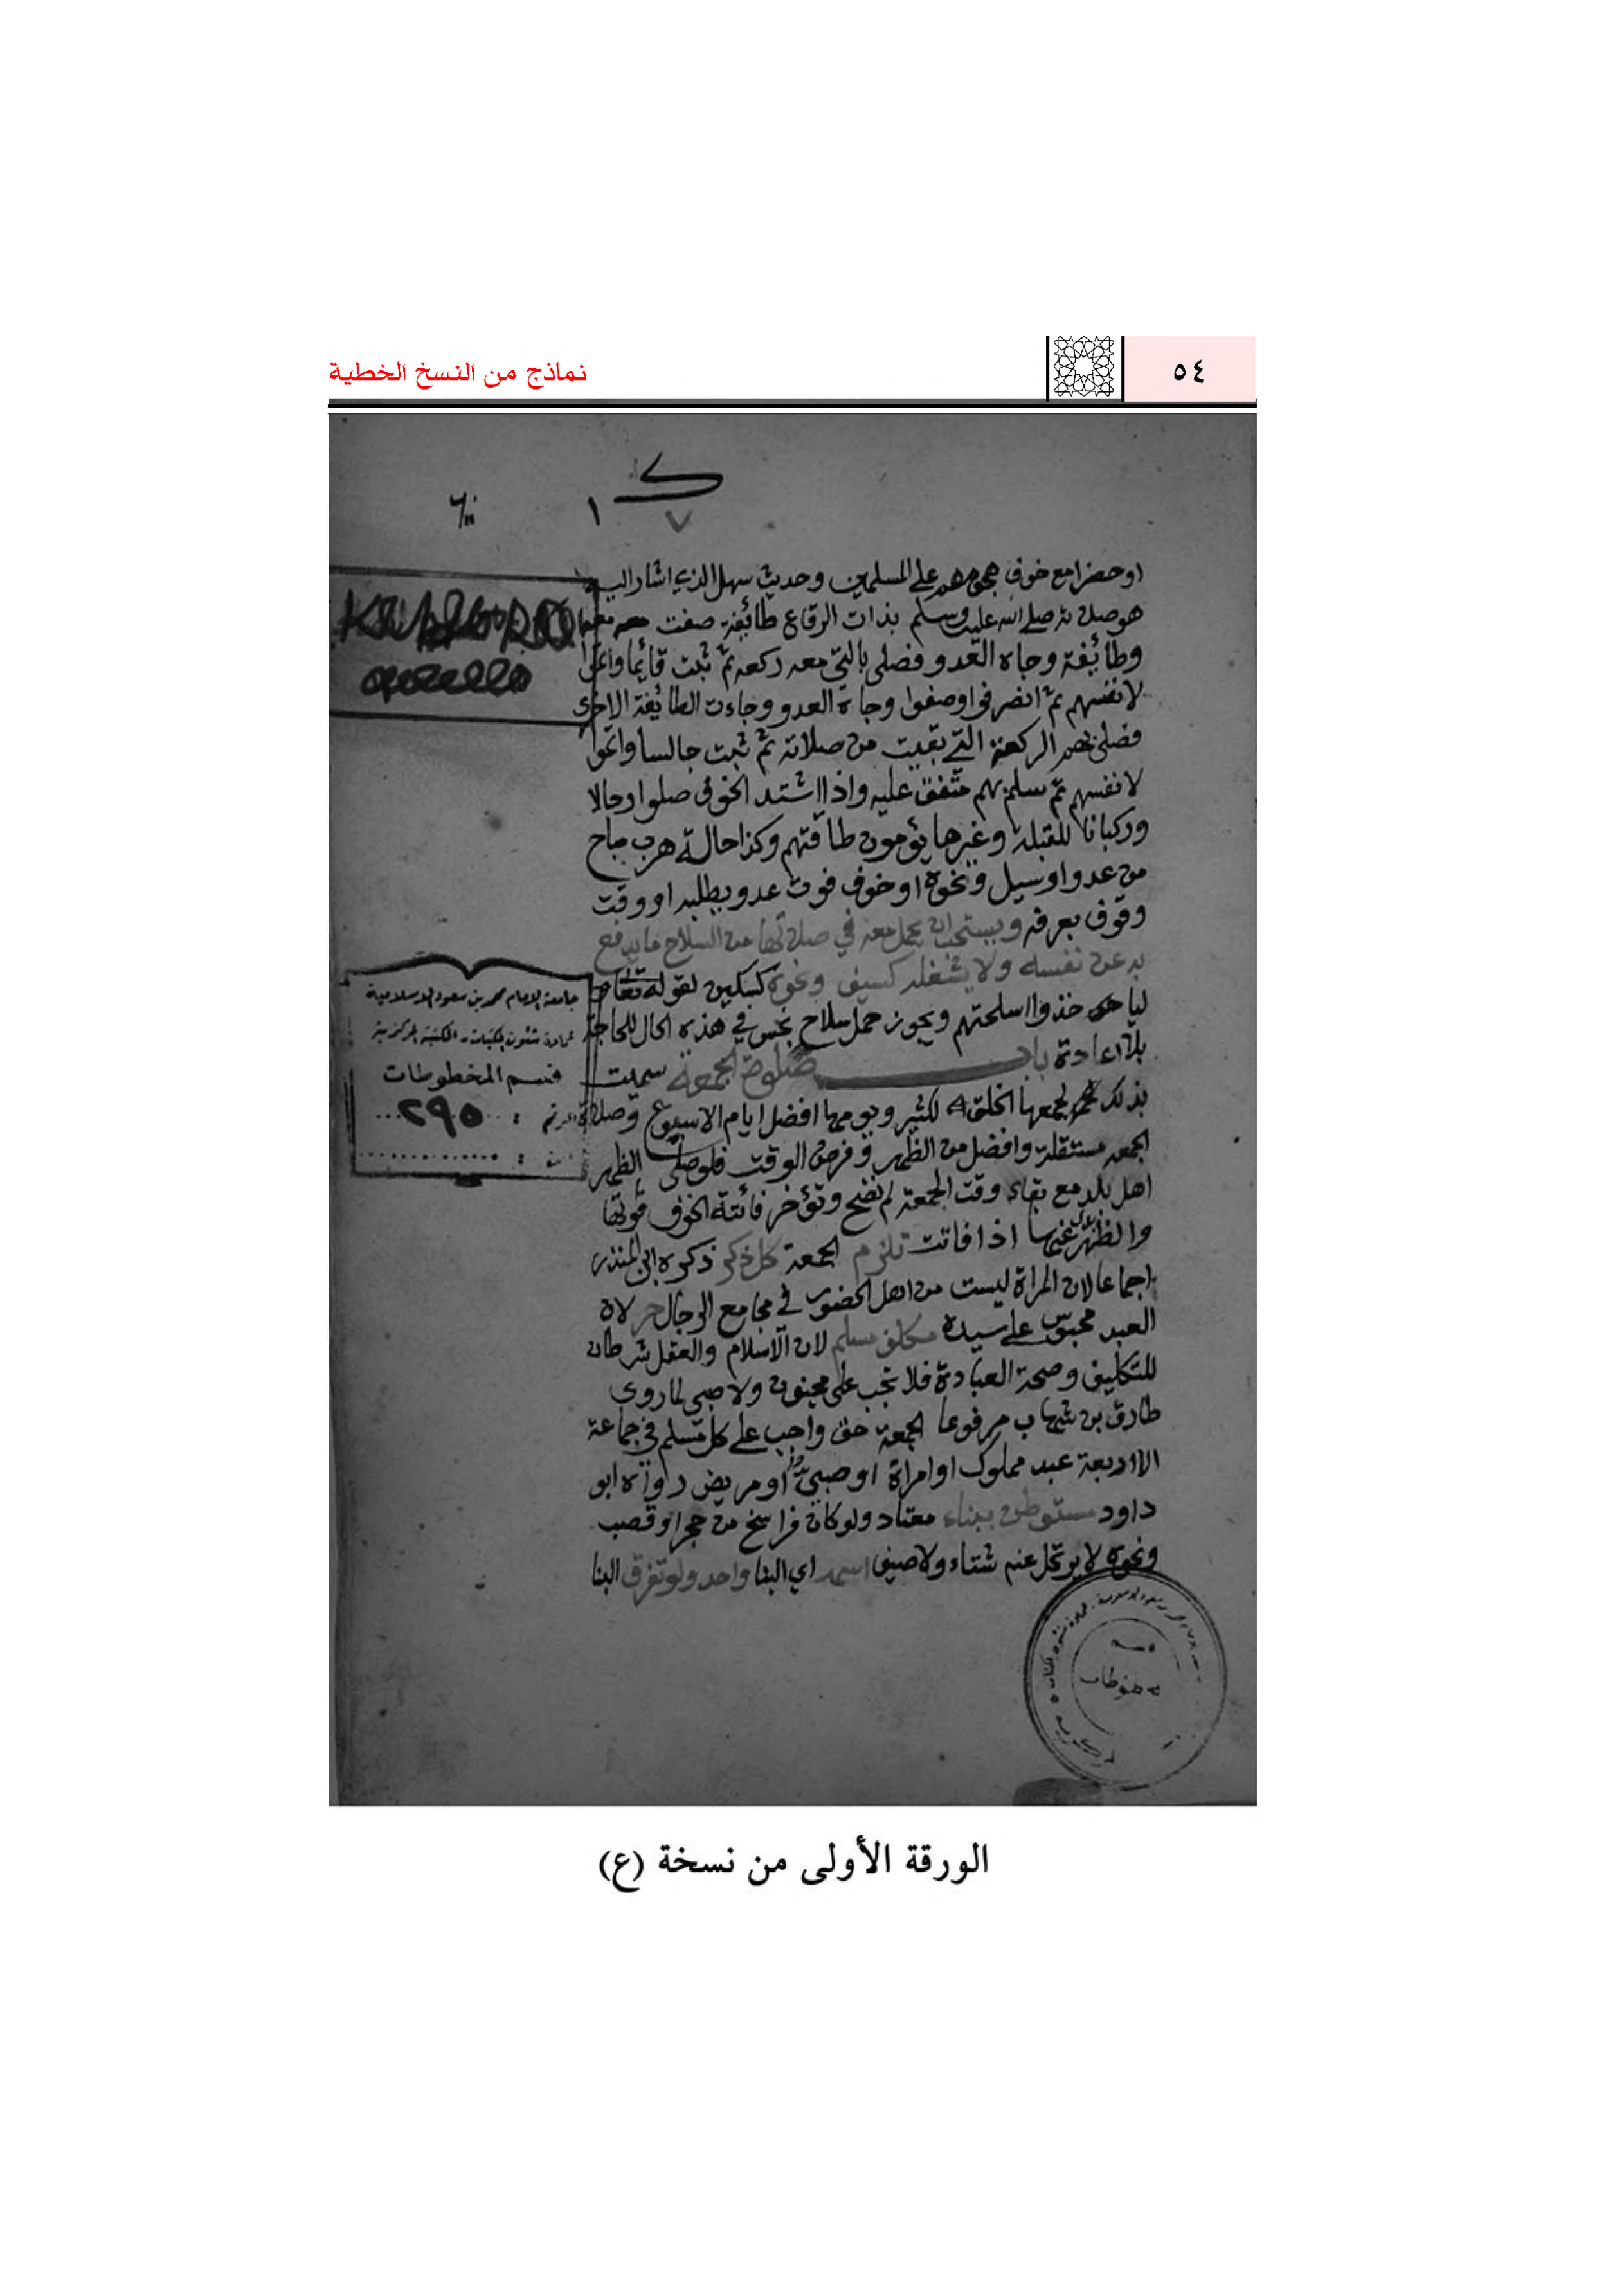 ٥٤
نماذج من النسخ الخطية
١
٧
او حضرا مع خوف هجومهم على المسلمين وحديث سهل الذي اشار اليه
هو صلاته صلى الله عليه وسلم بذات الرقاع طائفة صفت معه
وطائفة وجاه العدو فصلى بالتي معه ركعة ثم ثبت قائما واتموا
لانفسهم ثم انصرفوا وصفوا وجاه العدو وجاءت الطائفة الاخرى
فصلى بهم الركعة التي بقيت من صلاته ثم ثبت جالسا واتموا
لانفسهم ثم سلم بهم متفق عليه واذا اشتد الخوف صلوا رجالا
وركبانا للقبلة وغيرها يؤمون طاقتهم وكذا حالة هرب مباح
من عدو او سيل ونحوه او خوف فوت عدو يطلبه او وقت
وقوف بعرفه ويستحب ان يحمل معه في صلاتها من السلاح ما يدفع
به عن نفسه ولا يشغله كسيف ونحوه كسكين لقوله تعالى
لياخذوا اسلحتهم ويجوز حمل سلاح نجس في هذه الحال للحاجة
بلا اعادة باب صلوة الجمعة سميت
بذلك لجمعها الخلق الكثير ويومها افضل ايام الاسبوع وصلاة
الجمعه مستقلة وافضل من الظهر وفرض الوقت فلو صلى الظهر
اهل بلد مع بقاء وقت الجمعة لم تصح وتؤخر فائتة لخوف فوتها
والظهر بدل عنها اذا فاتت تلزم الجمعة كل ذكر ذكره ابن المنذر
اجماعا لان المراة ليست من اهل الحضور في مجامع الرجال حر لان
العبد محبوس على سيده مكلف مسلم لان الاسلام والعقل شرطان
للتكليف وصحة العبادة فلا تجب على مجنون ولا صبي لما روى
طارق بن شهاب مرفوعا الجمعة حق واجب على كل مسلم في جماعة
الا اربعة عبد مملوك او امراة او صبي او مريض رواه ابو
داود مستوطن ببناء معتاد ولو كان فراسخ من حجر او قصب
ونحوه لا يرتحل عنه شتاء ولا صيفا اسمه اي البنا واحد ولو تفرق البنا
جامعة الامام محمد بن سعود الاسلامية
عمادة شئون المكتبات - المكتبة المركزية
قسم المخطوطات
الرقم : ٢٩٥
قسم
مخطوطات
الورقة الأولى من نسخة (ع)